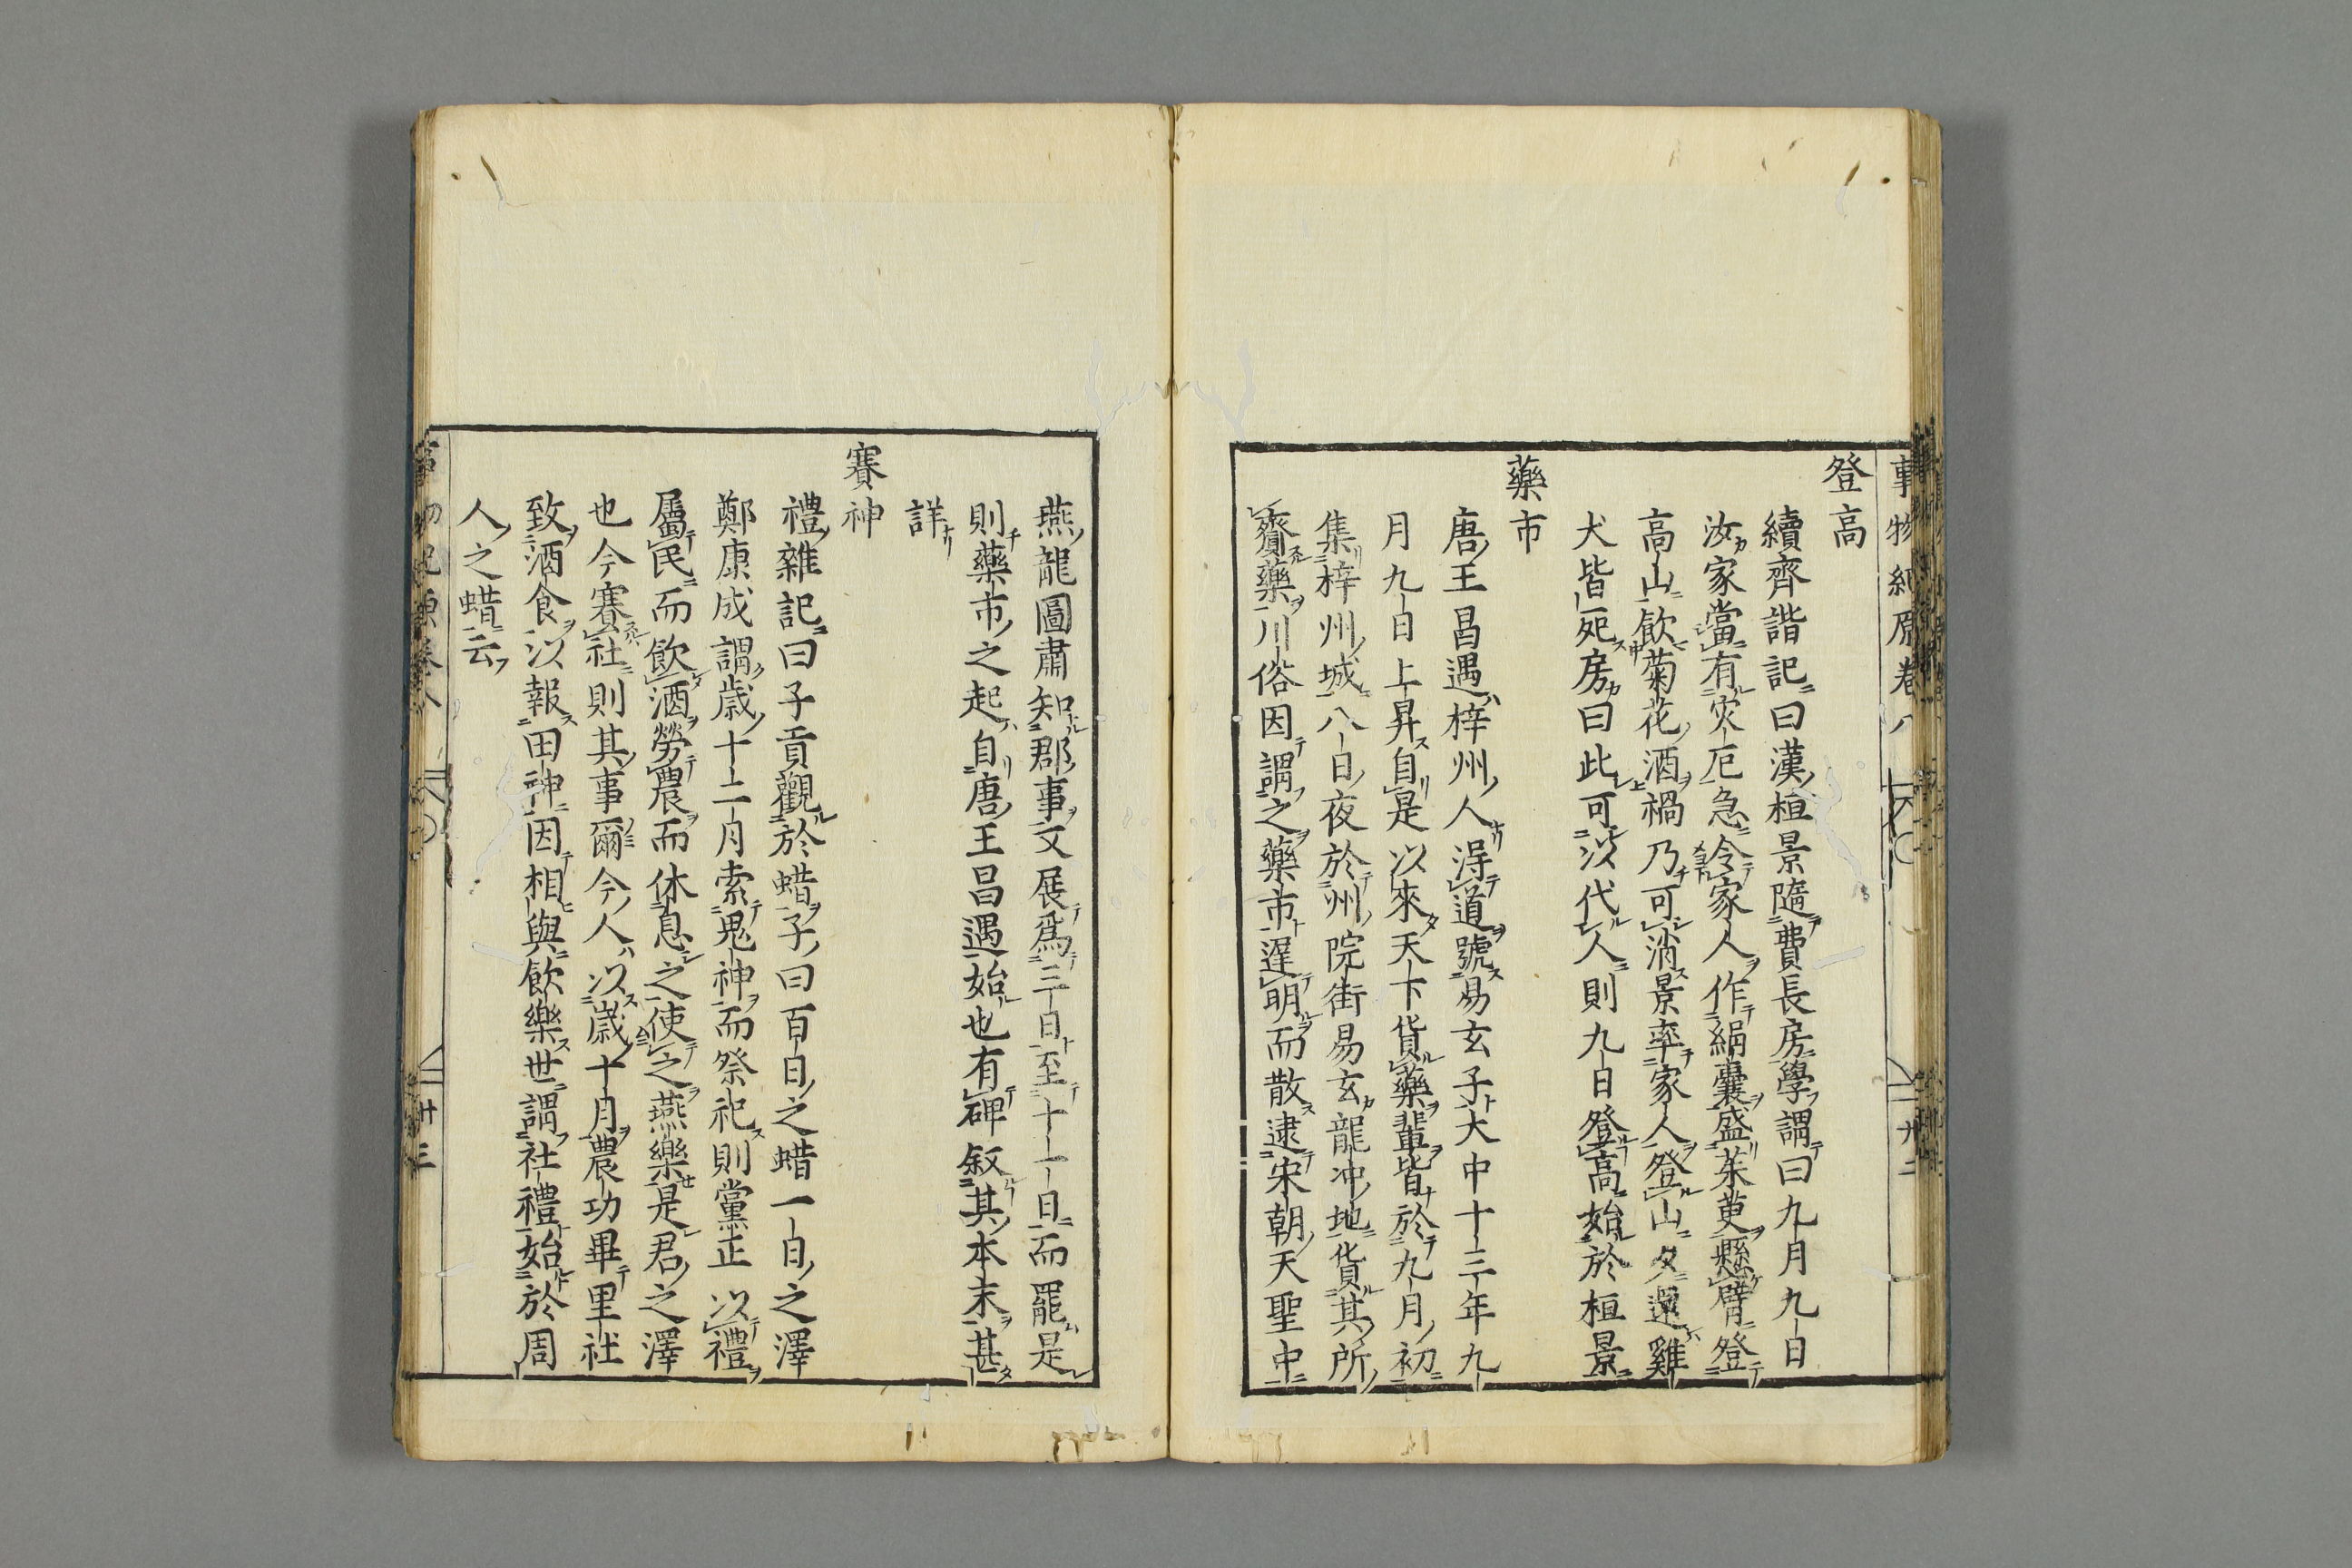 事物紀原卷八
登高
續齊諧記曰漢桓景隨費長房學謂曰九月九日
汝家當有灾厄急令家人作絹囊盛茱萸懸臂登
高山飲菊花酒禍乃可消景率家人登山夕還雞
犬皆死房曰此可以代人則九日登高始於桓景
藥市
唐王昌遇梓州人得道號易玄子大中十三年九
月九日上昇自是以來天下貨藥輩皆於九月初
集梓州城八日夜於州院街易玄龍冲地貨其所
齎藥川俗因謂之藥市遲明而散逮宋朝天聖中
燕龍圖肅知郡事又展爲三日至十一日而罷是
則藥市之起自唐王昌遇始也有碑叙其本末甚
詳
賽神
禮雜記曰子貢觀於蜡子曰百日之蜡一日之澤
鄭康成謂歲十二月索鬼神而祭祀則黨正以禮
屬民而飲酒勞農而休息之使之燕樂是君之澤
也今賽社則其事爾今人以歲十月農功畢里社
致酒食以報田神因相與飲樂世謂社禮始於周
人之蜡云